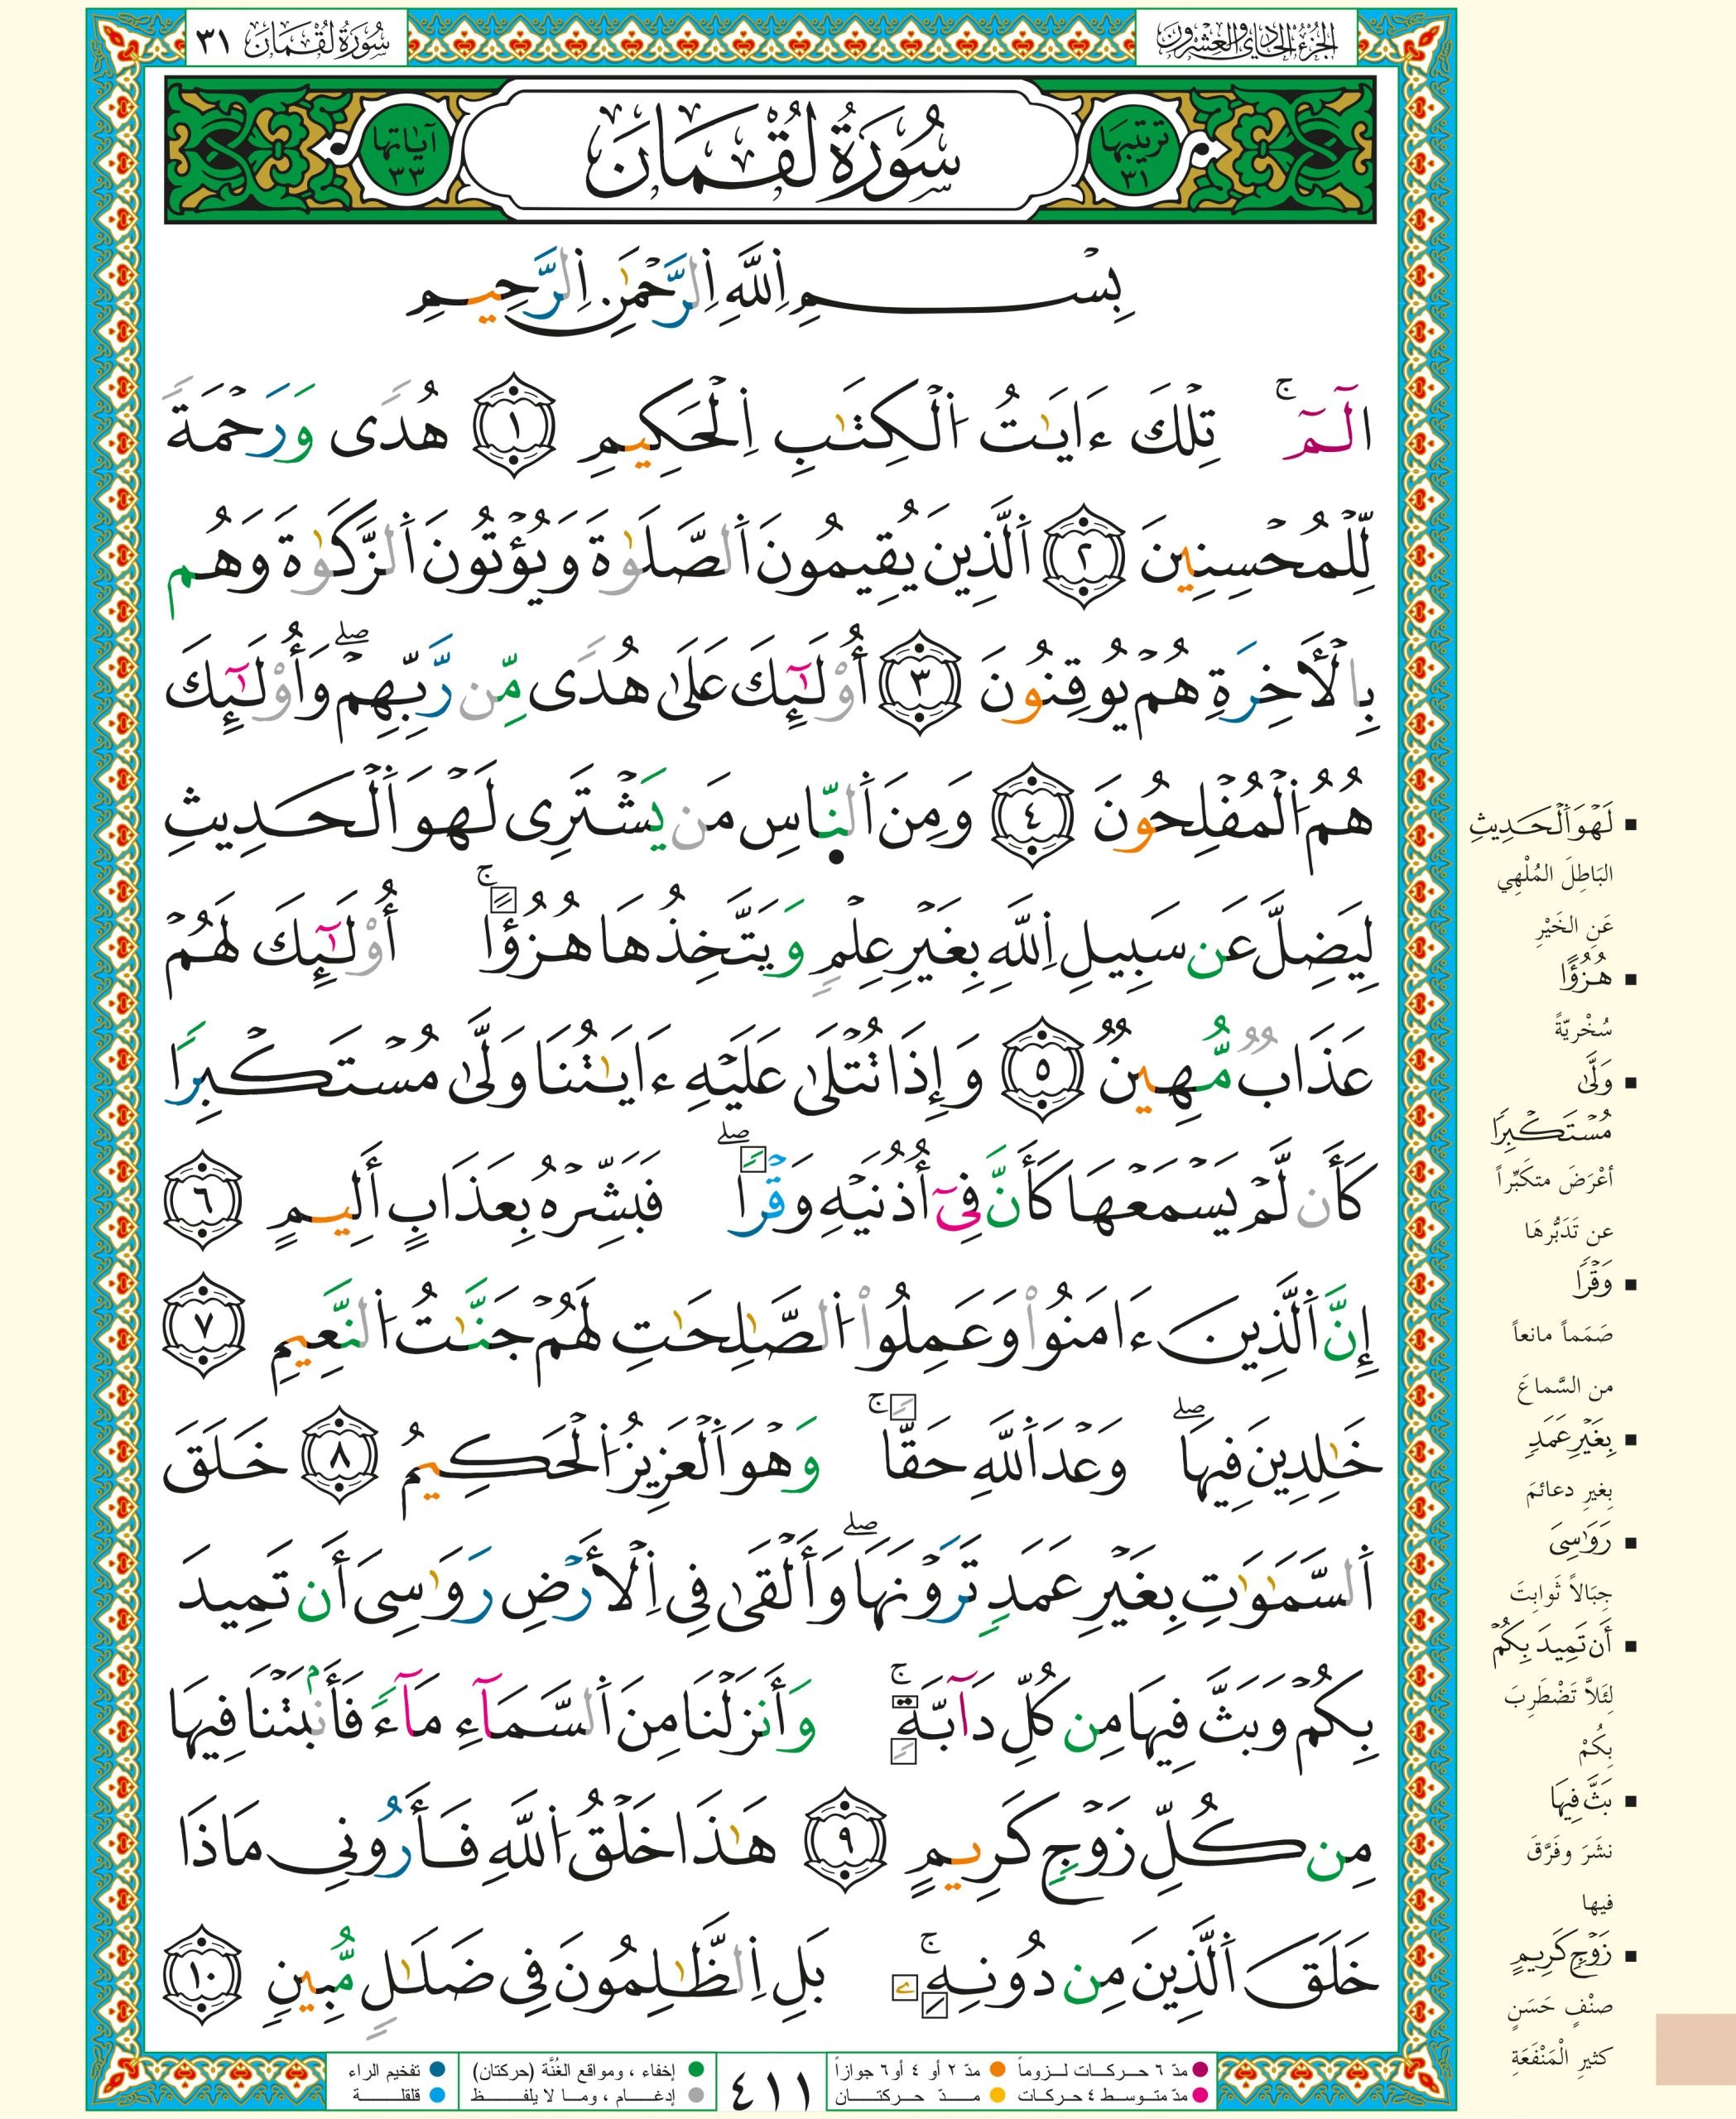 الجُزْءُ الحَادِي وَالعِشْرُونَ
سُورَةُ لُقْمَانَ ٣١
تَرتيبُهَا ٣١
سُورَةُ لُقْمَانَ
آيَاتُهَا ٣٣
بِسْمِ اِللَّهِ اِلرَّحْمَٰنِ اِلرَّحِيمِ
الٓمٓ ۚ تِلْكَ ءَايَٰتُ اُ۬لْكِتَٰبِ اِ۬لْحَكِيمِ ١ هُدًى وَرَحْمَةً
لِّلْمُحْسِنِينَ ٢ اَ۬لَّذِينَ يُقِيمُونَ اَ۬لصَّلَوٰةَ وَيُؤْتُونَ اَ۬لزَّكَوٰةَ وَهُم
بِالْأَخِرَةِ هُمْ يُوقِنُونَ ٣ أُوْلَٰٓئِكَ عَلَىٰ هُدًى مِّن رَّبِّهِمْ ۖ وَأُوْلَٰٓئِكَ
هُمُ اُ۬لْمُفْلِحُونَ ٤ وَمِنَ اَ۬لنَّاسِ مَن يَشْتَرِى لَهْوَ اَ۬لْحَدِيثِ
لِيَضِلَّ عَن سَبِيلِ اِ۬للَّهِ بِغَيْرِ عِلْمٍ وَيَتَّخِذُهَا هُزُؤًا ۚ أُوْلَٰٓئِكَ لَهُمْ
عَذَابٌ مُّهِينٌ ٥ وَإِذَا تُتْلَىٰ عَلَيْهِ ءَايَٰتُنَا وَلَّىٰ مُسْتَكْبِرًا
كَأَن لَّمْ يَسْمَعْهَا كَأَنَّ فِىٓ أُذُنَيْهِ وَقْرًا ۖ فَبَشِّرْهُ بِعَذَابٍ أَلِيمٍ ٦
إِنَّ اَ۬لَّذِينَ ءَامَنُواْ وَعَمِلُواْ اُ۬لصَّٰلِحَٰتِ لَهُمْ جَنَّٰتُ اُ۬لنَّعِيمِ ٧
خَٰلِدِينَ فِيهَا ۖ وَعْدَ اَ۬للَّهِ حَقًّا ۚ وَهْوَ اَ۬لْعَزِيزُ اُ۬لْحَكِيمُ ٨ خَلَقَ
اَ۬لسَّمَٰوَٰتِ بِغَيْرِ عَمَدٍ تَرَوْنَهَا ۖ وَأَلْقَىٰ فِى اِ۬لْأَرْضِ رَوَٰسِىَ أَن تَمِيدَ
بِكُمْ وَبَثَّ فِيهَا مِن كُلِّ دَآبَّةٍ ۚ وَأَنزَلْنَا مِنَ اَ۬لسَّمَآءِ مَآءً فَأَنۢبَتْنَا فِيهَا
مِن كُلِّ زَوْجٍ كَرِيمٍ ٩ هَٰذَا خَلْقُ اُ۬للَّهِ فَأَرُونِى مَاذَا
خَلَقَ اَ۬لَّذِينَ مِن دُونِهِۦ ۚ بَلِ اِ۬لظَّٰلِمُونَ فِى ضَلَٰلٍ مُّبِينٍ ١٠
▪ لَهْوَ اَ۬لْحَدِيثِ
البَاطِلَ المُلْهِي
عَنِ الخَيْرِ
▪ هُزُؤًا
سُخْرِيّةً
▪ وَلَّىٰ
مُسْتَكْبِرًا
أعْرَضَ متكَبِّراً
عن تَدَبُّرِهَا
▪ وَقْرًا
صَمَماً مانعاً
من السَّماعَ
▪ بِغَيْرِ عَمَدٍ
بغيرِ دعائمَ
▪ رَوَٰسِىَ
جِبَالاً ثَوابِتَ
▪ أَن تَمِيدَ بِكُمْ
لِئَلاَّ تَضْطَرِبَ
بِكُمْ
▪ بَثَّ فِيهَا
نشَرَ وفَرَّقَ
فيها
▪ زَوْجٍ كَرِيمٍ
صنْفٍ حَسَنٍ
كثيرِ الْمَنْفَعَةِ
● مدّ ٦ حركات لزوماً ● مدّ ٢ أو ٤ أو ٦ جوازاً
● مدّ متوسط ٤ حركات ● مدّ حركتان
٤١١
● إخفاء ، ومواقع الغُنَّة (حركتان) ● تفخيم الراء
● إدغام ، وما لا يلفظ ● قلقلة